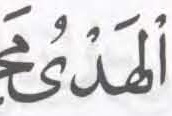 الْهَدْىُ مَح